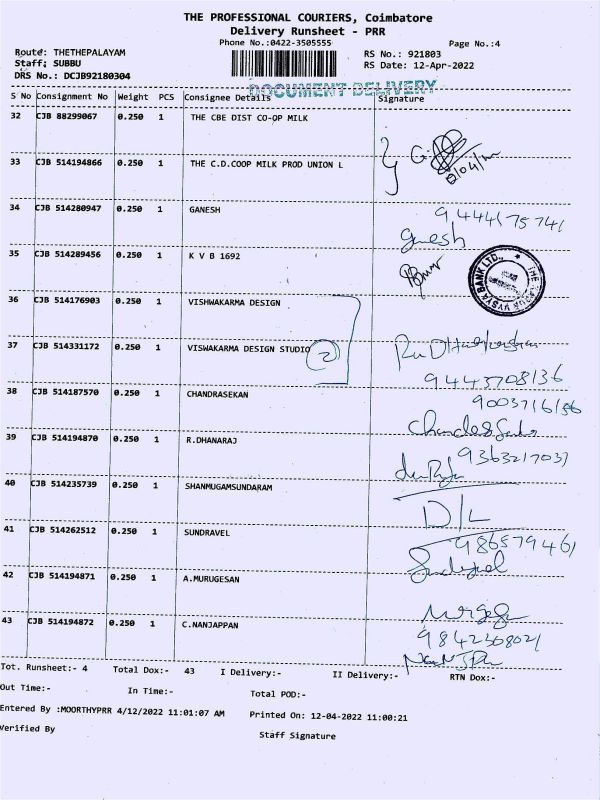 THE PROFESSIONAL COURIERS, Coimbatore
Delivery Runsheet - PRR
Phone No.:0422-3505555
Page No.:4
Route: THETHEPALAYAM
RS No.: 921803
Staff: SUBBU
RS Date: 12-Apr-2022
DRS No.: DCJB92180304
DOCUMENT DELIVERY
S No Consignment No Weight PCS Consignee Details Signature
32 CJB 88299067 0.250 1 THE CBE DIST CO-OP MILK
33 CJB 514194866 0.250 1 THE C.D.COOP MILK PROD UNION L
34 CJB 514280947 0.250 1 GANESH
Ganesh
35 CJB 514289456 0.250 1 K V B 1692
36 CJB 514176903 0.250 1 VISHWAKARMA DESIGN
37 CJB 514331172 0.250 1 VISWAKARMA DESIGN STUDIO 2
38 CJB 514187570 0.250 1 CHANDRASEKAN
39 CJB 514194870 0.250 1 R.DHANARAJ
40 CJB 514235739 0.250 1 SHANMUGAMSUNDARAM
D/L
41 CJB 514262512 0.250 1 SUNDRAVEL
9865794461
42 CJB 514194871 0.250 1 A.MURUGESAN
43 CJB 514194872 0.250 1 C.NANJAPPAN
Tot. Runsheet:- 4 Total Dox:- 43 I Delivery:- II Delivery:- RTN Dox:-
Out Time:- In Time:- Total POD:-
Entered By :MOORTHYPRR 4/12/2022 11:01:07 AM Printed On: 12-04-2022 11:00:21
Verified By Staff Signature